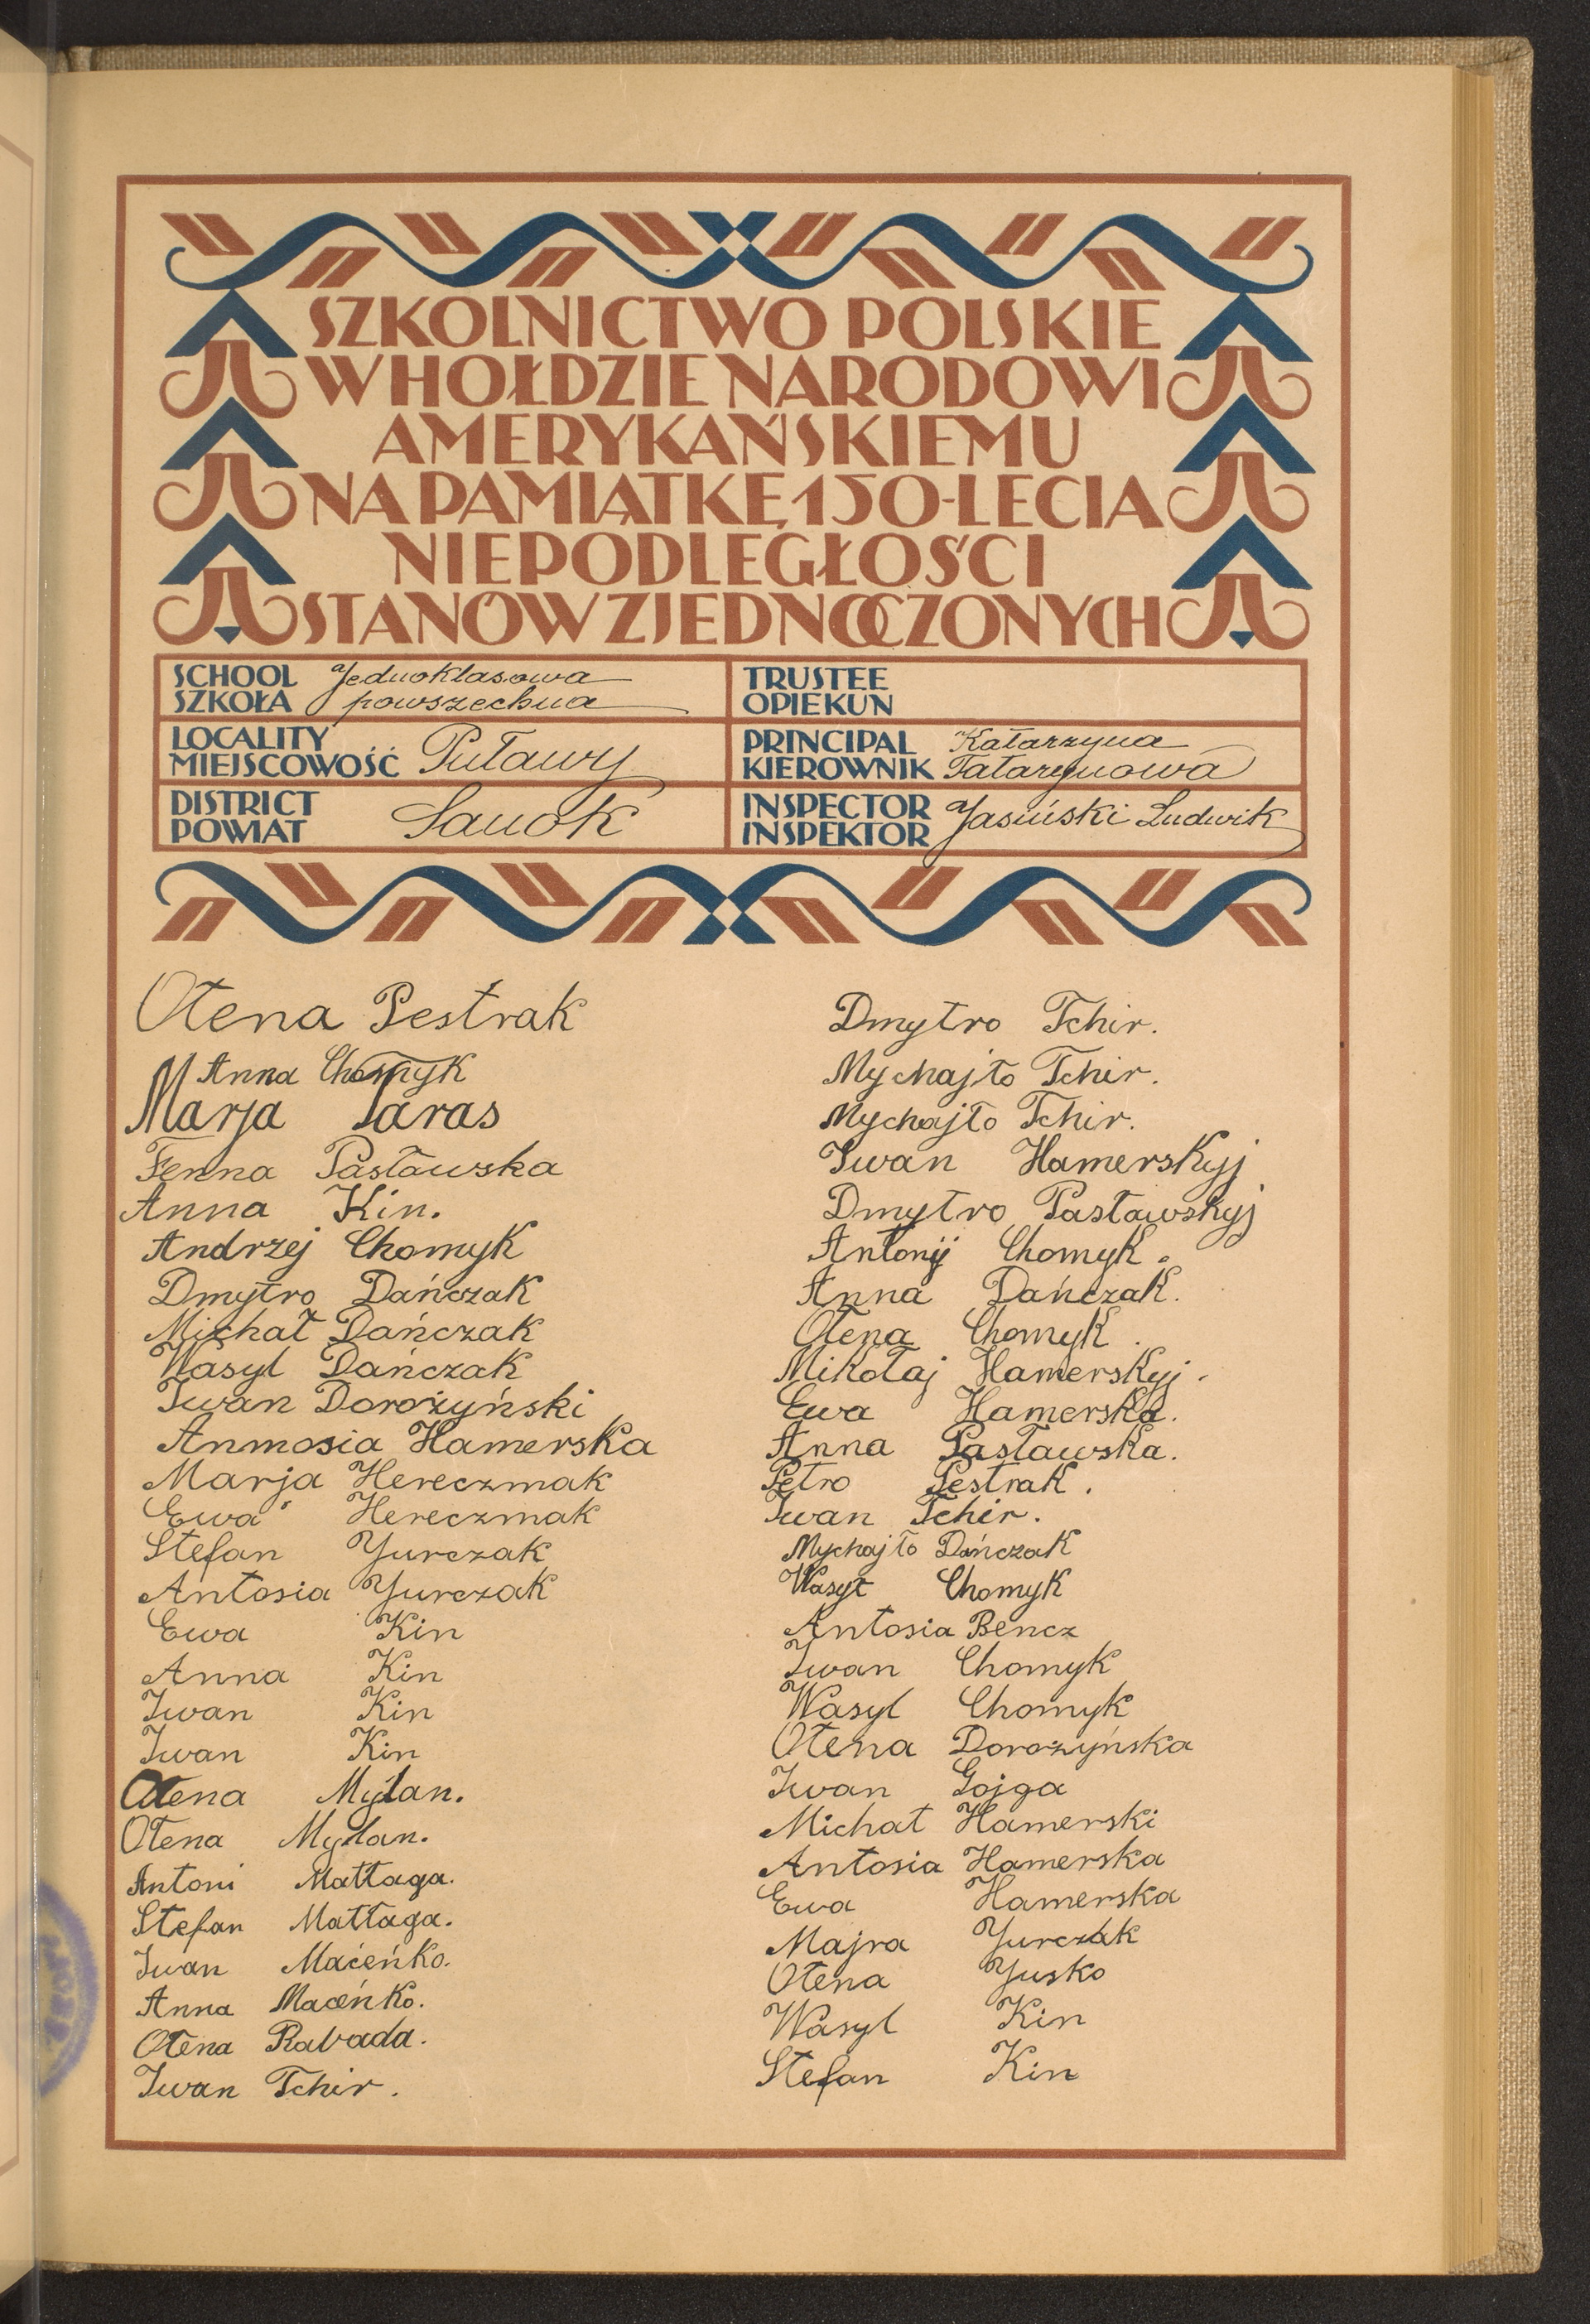 SZKOLNICTWO POLSKIE
W HOŁDZIE NARODOWI
AMERYKAŃSKIEMU
NA PAMIĄTKĘ 150-LECIA
NIEPODLEGŁOŚCI
STANÓW ZJEDNOCZONYCH
SCHOOL
SZKOŁA
Jednoklasowa
powszechna
TRUSTEE
OPIEKUN
LOCALITY
MIEJSCOWOŚĆ
Puławy
PRINCIPAL
KIEROWNIK
Katarzyna
Tatarynowa
DISTRICT
POWIAT
Sanok
INSPECTOR
INSPEKTOR
Jasiński Ludwik
Ołena Pestrak
Anna Chomyk
Marja Taras
Fenna Pasławska
Anna Kin.
Andrzej Chomyk
Dmytro Dańczak
Michał Dańczak
Wasyl Dańczak
Iwan Dorożyński
Anmosia Hamerska
Marja Hereczmak
Ewa Hereczmak
Stefan Yurczak
Antosia Yurczak
Ewa Kin
Anna Kin
Iwan Kin
Iwan Kin
Ołena Mylan.
Ołena Mylan.
Antoni Mattaga.
Stefan Mattaga.
Iwan Maćeńko.
Anna Maceńko.
Ołena Rabada.
Iwan Tchir.
Dmytro Tchir.
Mychajło Tchir.
Mychajło Tchir.
Iwan Hamerskyj
Dmytro Pasławskyj
Antonij Chomyk.
Anna Dańczak.
Ołena Chomyk.
Mikołaj Hamerskyj.
Ewa Hamerska.
Anna Pasławska.
Petro Pestrak.
Iwan Tchir.
Mychajło Dańczak
Wasył Chomyk
Antosia Bencz
Iwan Chomyk
Wasyl Chomyk
Ołena Dorożyńska
Iwan Gojga
Michał Hamerski
Antosia Hamerska
Ewa Hamerska
Majra Yurczak
Ołena Yusko
Wasyl Kin
Stefan Kin